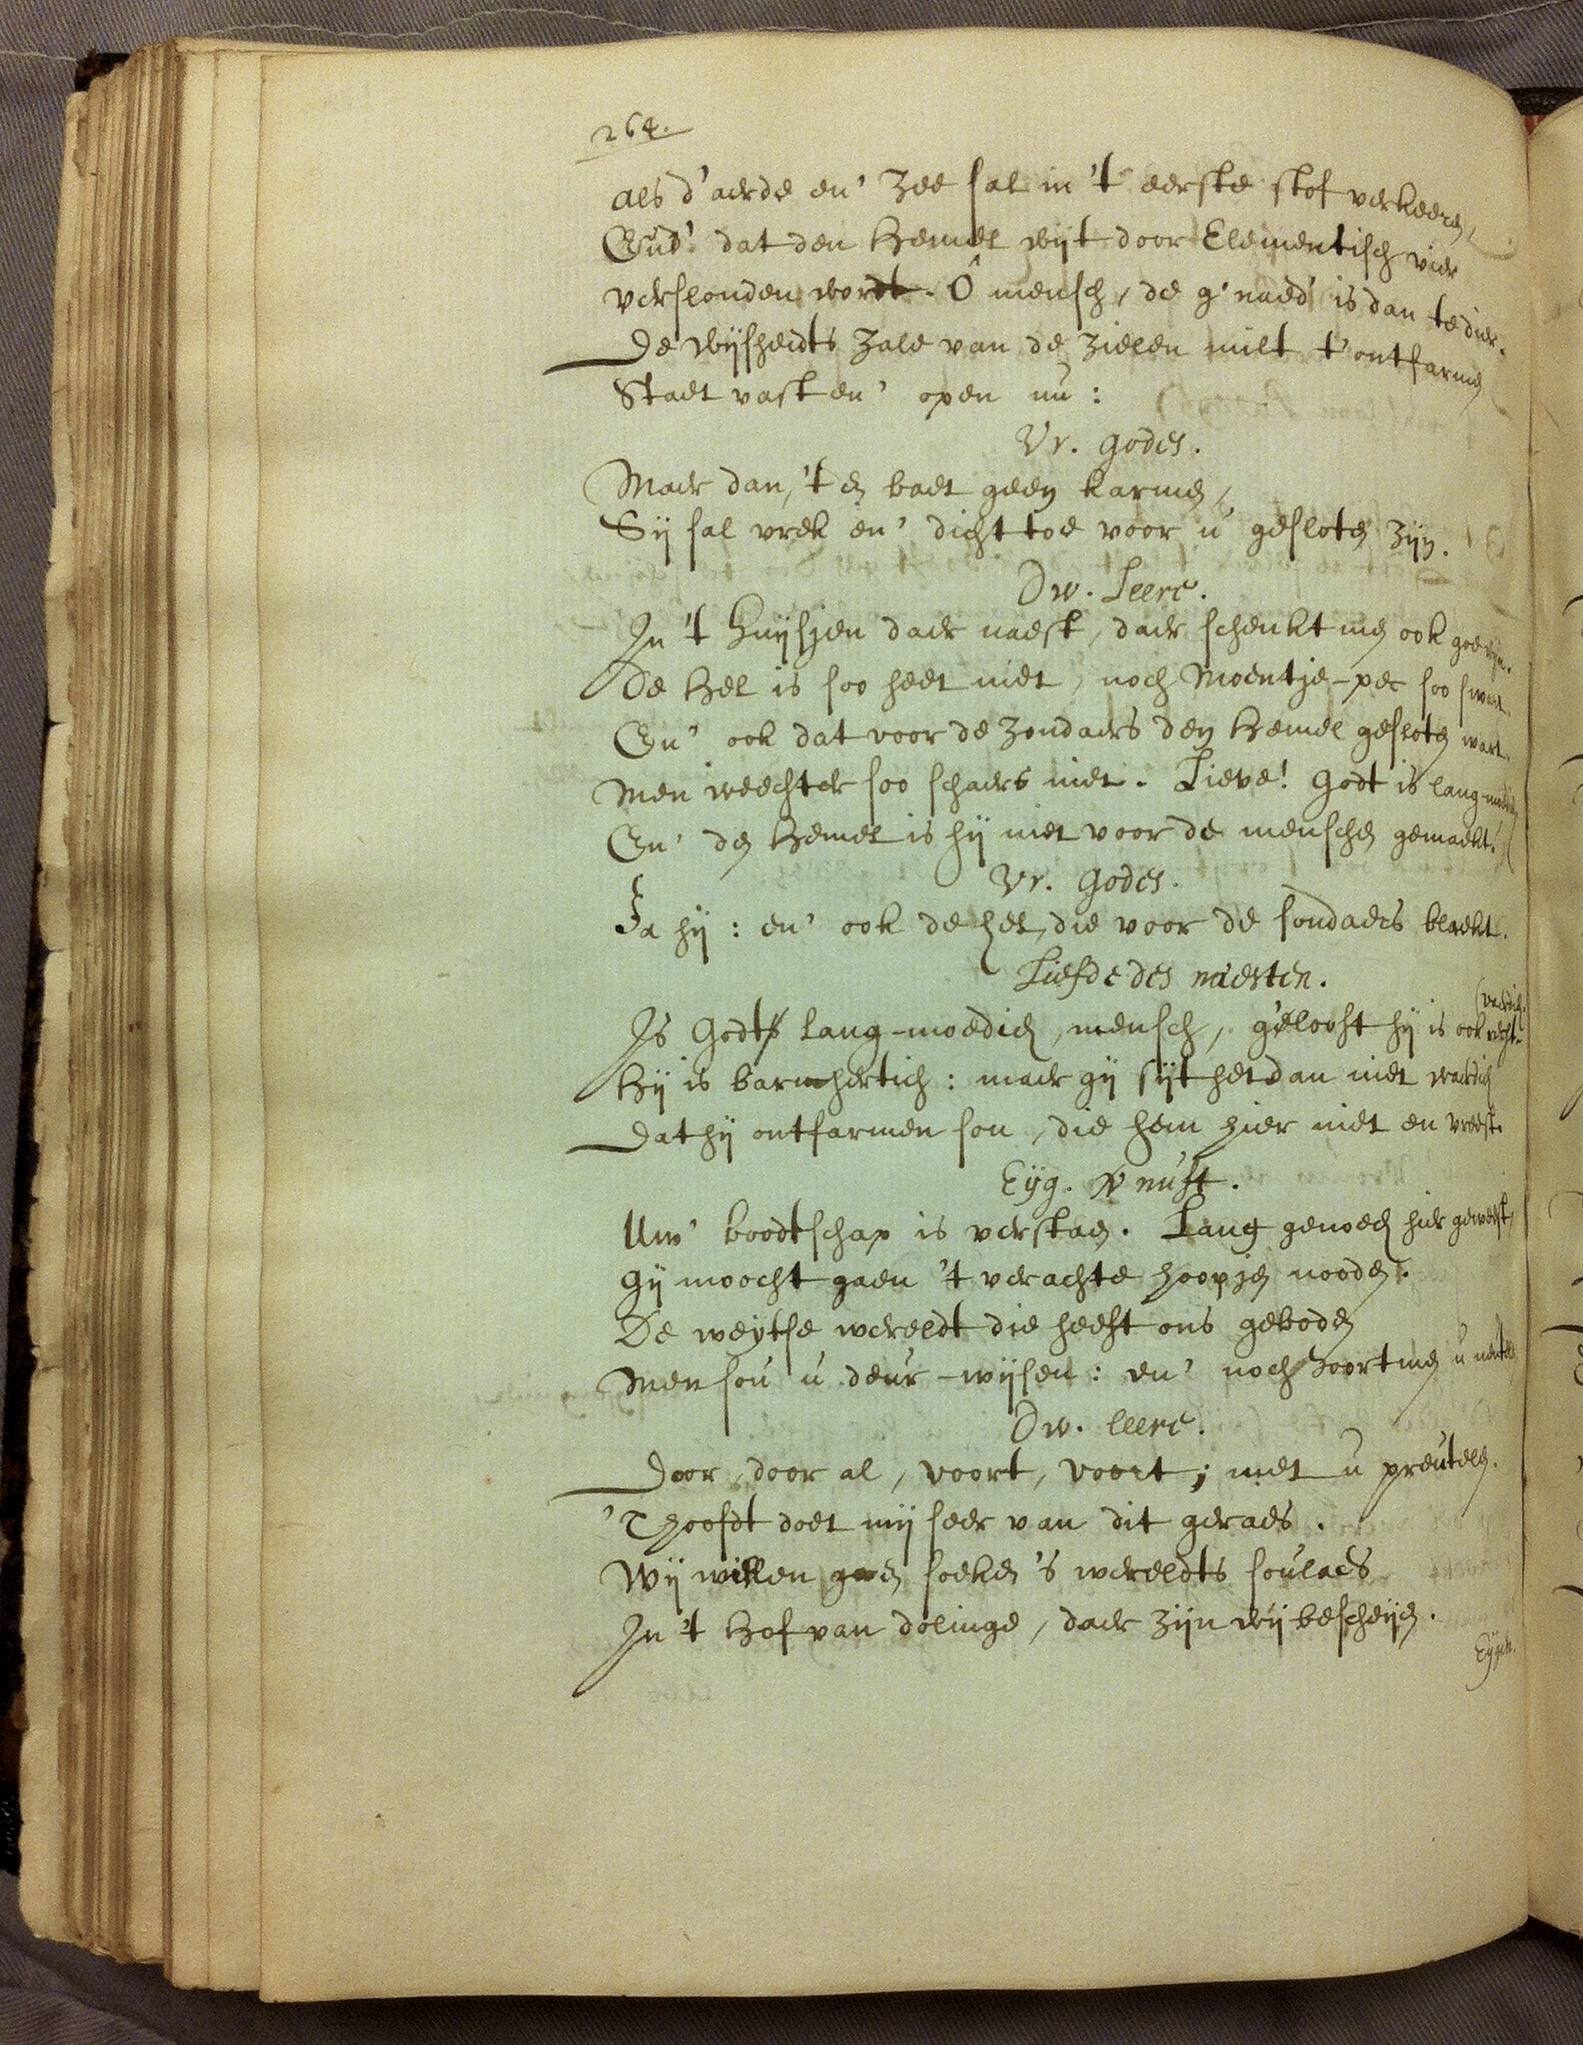 264.
als d'aerde en' Zee sal in 't eerste stof verkeeren,
End' dat den Hemel wijt door Elementisch vier
verslonden wordt. Ô mensch, de g'naed' is dan te dier.
De wijsheidts Zale van de Zielen milt t'ontfarmen
Staet vast en' open nu:
Vr. Godes.
Maer dan, 't en baet geen karmen,
Sij sal vrek en' dicht toe voor u gesloten zijn.
Dw. Leere.
In 't huijsjen daer naest, daer schenkt men ook goe wijn.
De Hel is soo heet niet, noch Moentje-pec soo swart.
En' ook dat voor de Zondaers den Hemel gesloten wart.
Men weechter soo schaers niet. Lieve! Godt is lang-
En' den Hemel is hij niet voor de menschen gemaekt?
Vr. Godes.
Ja hij: en' ook de hel, die voor de sondaers blaekt.
Liefde des naesten.
Is Godt lang-moedich, mensch, gelooft hij is ook recht-
(vaerdich.
Hij is barmhertich: maer gij sijt het dan niet waerdich
Dat hij ontfarmen sou, die hem hier niet en vreest.
Eijg. vernuft.
Uw' boodtschap is verstaen. Lang genoech hier geweest,
Gij moocht gaen 't verachte hoopjen nooden.
De weytse wereldt die heeft ons geboden
Men sou u deur-wijsen: en' noch hoort men u
Dw. leere.
Door, door al, voort, voort; niet u preutelen.
'T hoofdt doet mij seer van dit geraes.
Wij willen gaen soeken 's wereldts soulaes
In 't Hof van dolinge, daer zijn wij bescheijen.
Eijgen.